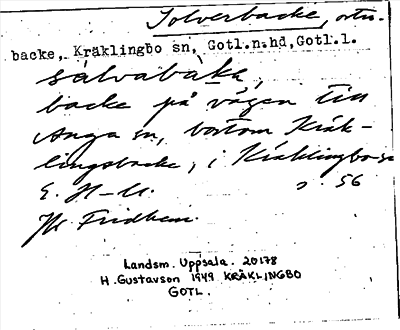 Solverbacke, ortn.
backe, Kräklingbo sn, Gotl.n.hd, Gotl.l.
sålvabaka,
backe på vägen till
Anga sn, bortom Kräk-
lingsbacke, i Kräklingbo sn
E. H-n. s. 56
Fridhem.
Landsm. Uppsala. 20178
H. Gustavson 1949 KRÄKLINGBO
GOTL.